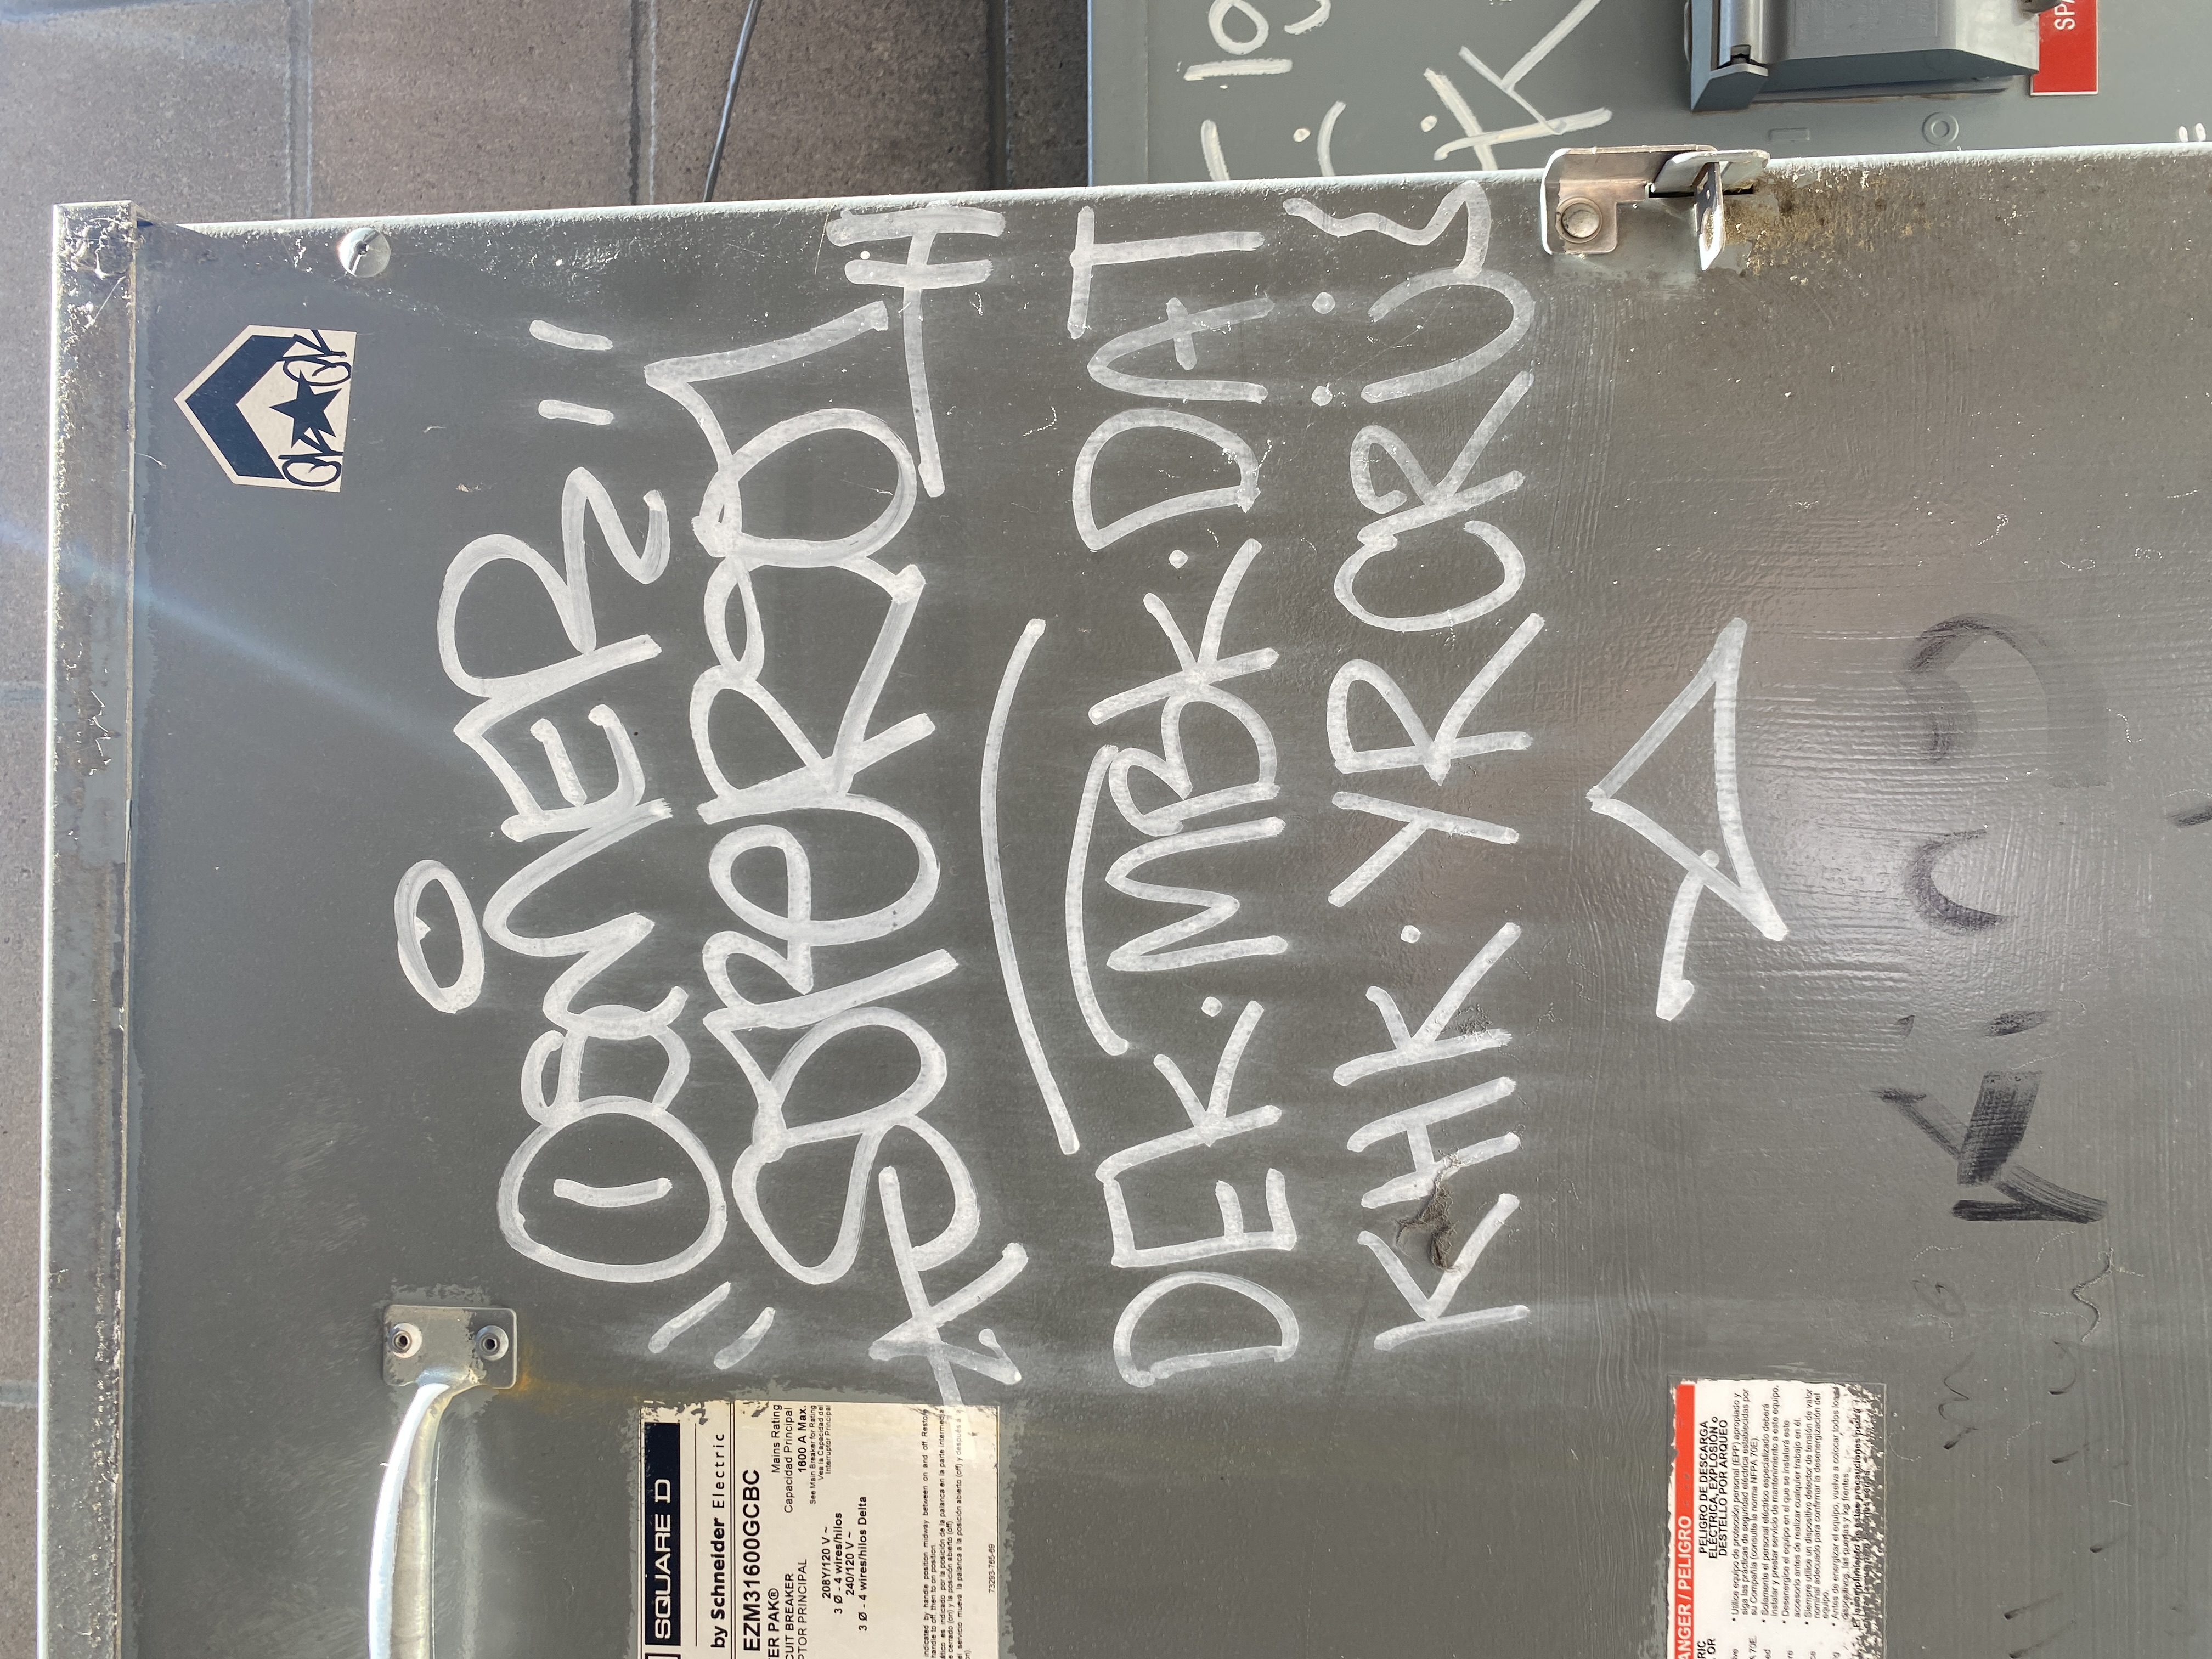 OSMER
"SUPERO1"
DEK·MBK·DAT
KHK·YRCRÜ
SQUARE D
by Schneider Electric
EZM31600GCBC
ER PAK®
CUIT BREAKER
PTOR PRINCIPAL
Mains Rating
Capacidad Principal
1600 A Max.
See Main Breaker for Rating
Vea la Capacidad del
Interruptor Principal
208Y/120 V ~
3 Ø - 4 wires/hilos
240/120 V ~
3 Ø - 4 wires/hilos Delta
indicated by handle position midway between on and off Restore
handle to off, then to on position.
ático es indicado por la posición de la palanca en la parte intermedia
e cerrado (on) y la posición abierto (off)
el servicio mueva la palanca a la posición abierto (off) y después a
on).
73293-765-69
ANGER / PELIGRO
RIC
OR
PELIGRO DE DESCARGA
ELÉCTRICA, EXPLOSIÓN o
DESTELLO POR ARQUEO
• Utilice equipo de protección personal (EPP) apropiado y
siga las prácticas de seguridad eléctrica establecidas por
su Compañía (consulte la norma NFPA 70E).
• Solamente el personal eléctrico especializado deberá
instalar y prestar servicio de mantenimiento a este equipo.
• Desenergice el equipo en el que se instalará este
accesorio antes de realizar cualquier trabajo en él.
• Siempre utilice un dispositivo detector de tensión de valor
nominal adecuado para confirmar la desenergización del
equipo.
• Antes de energizar el equipo, vuelva a colocar todos los
dispositivos, las puertas y los frentes.
El incumplimiento de estas precauciones podrá
King
SPA